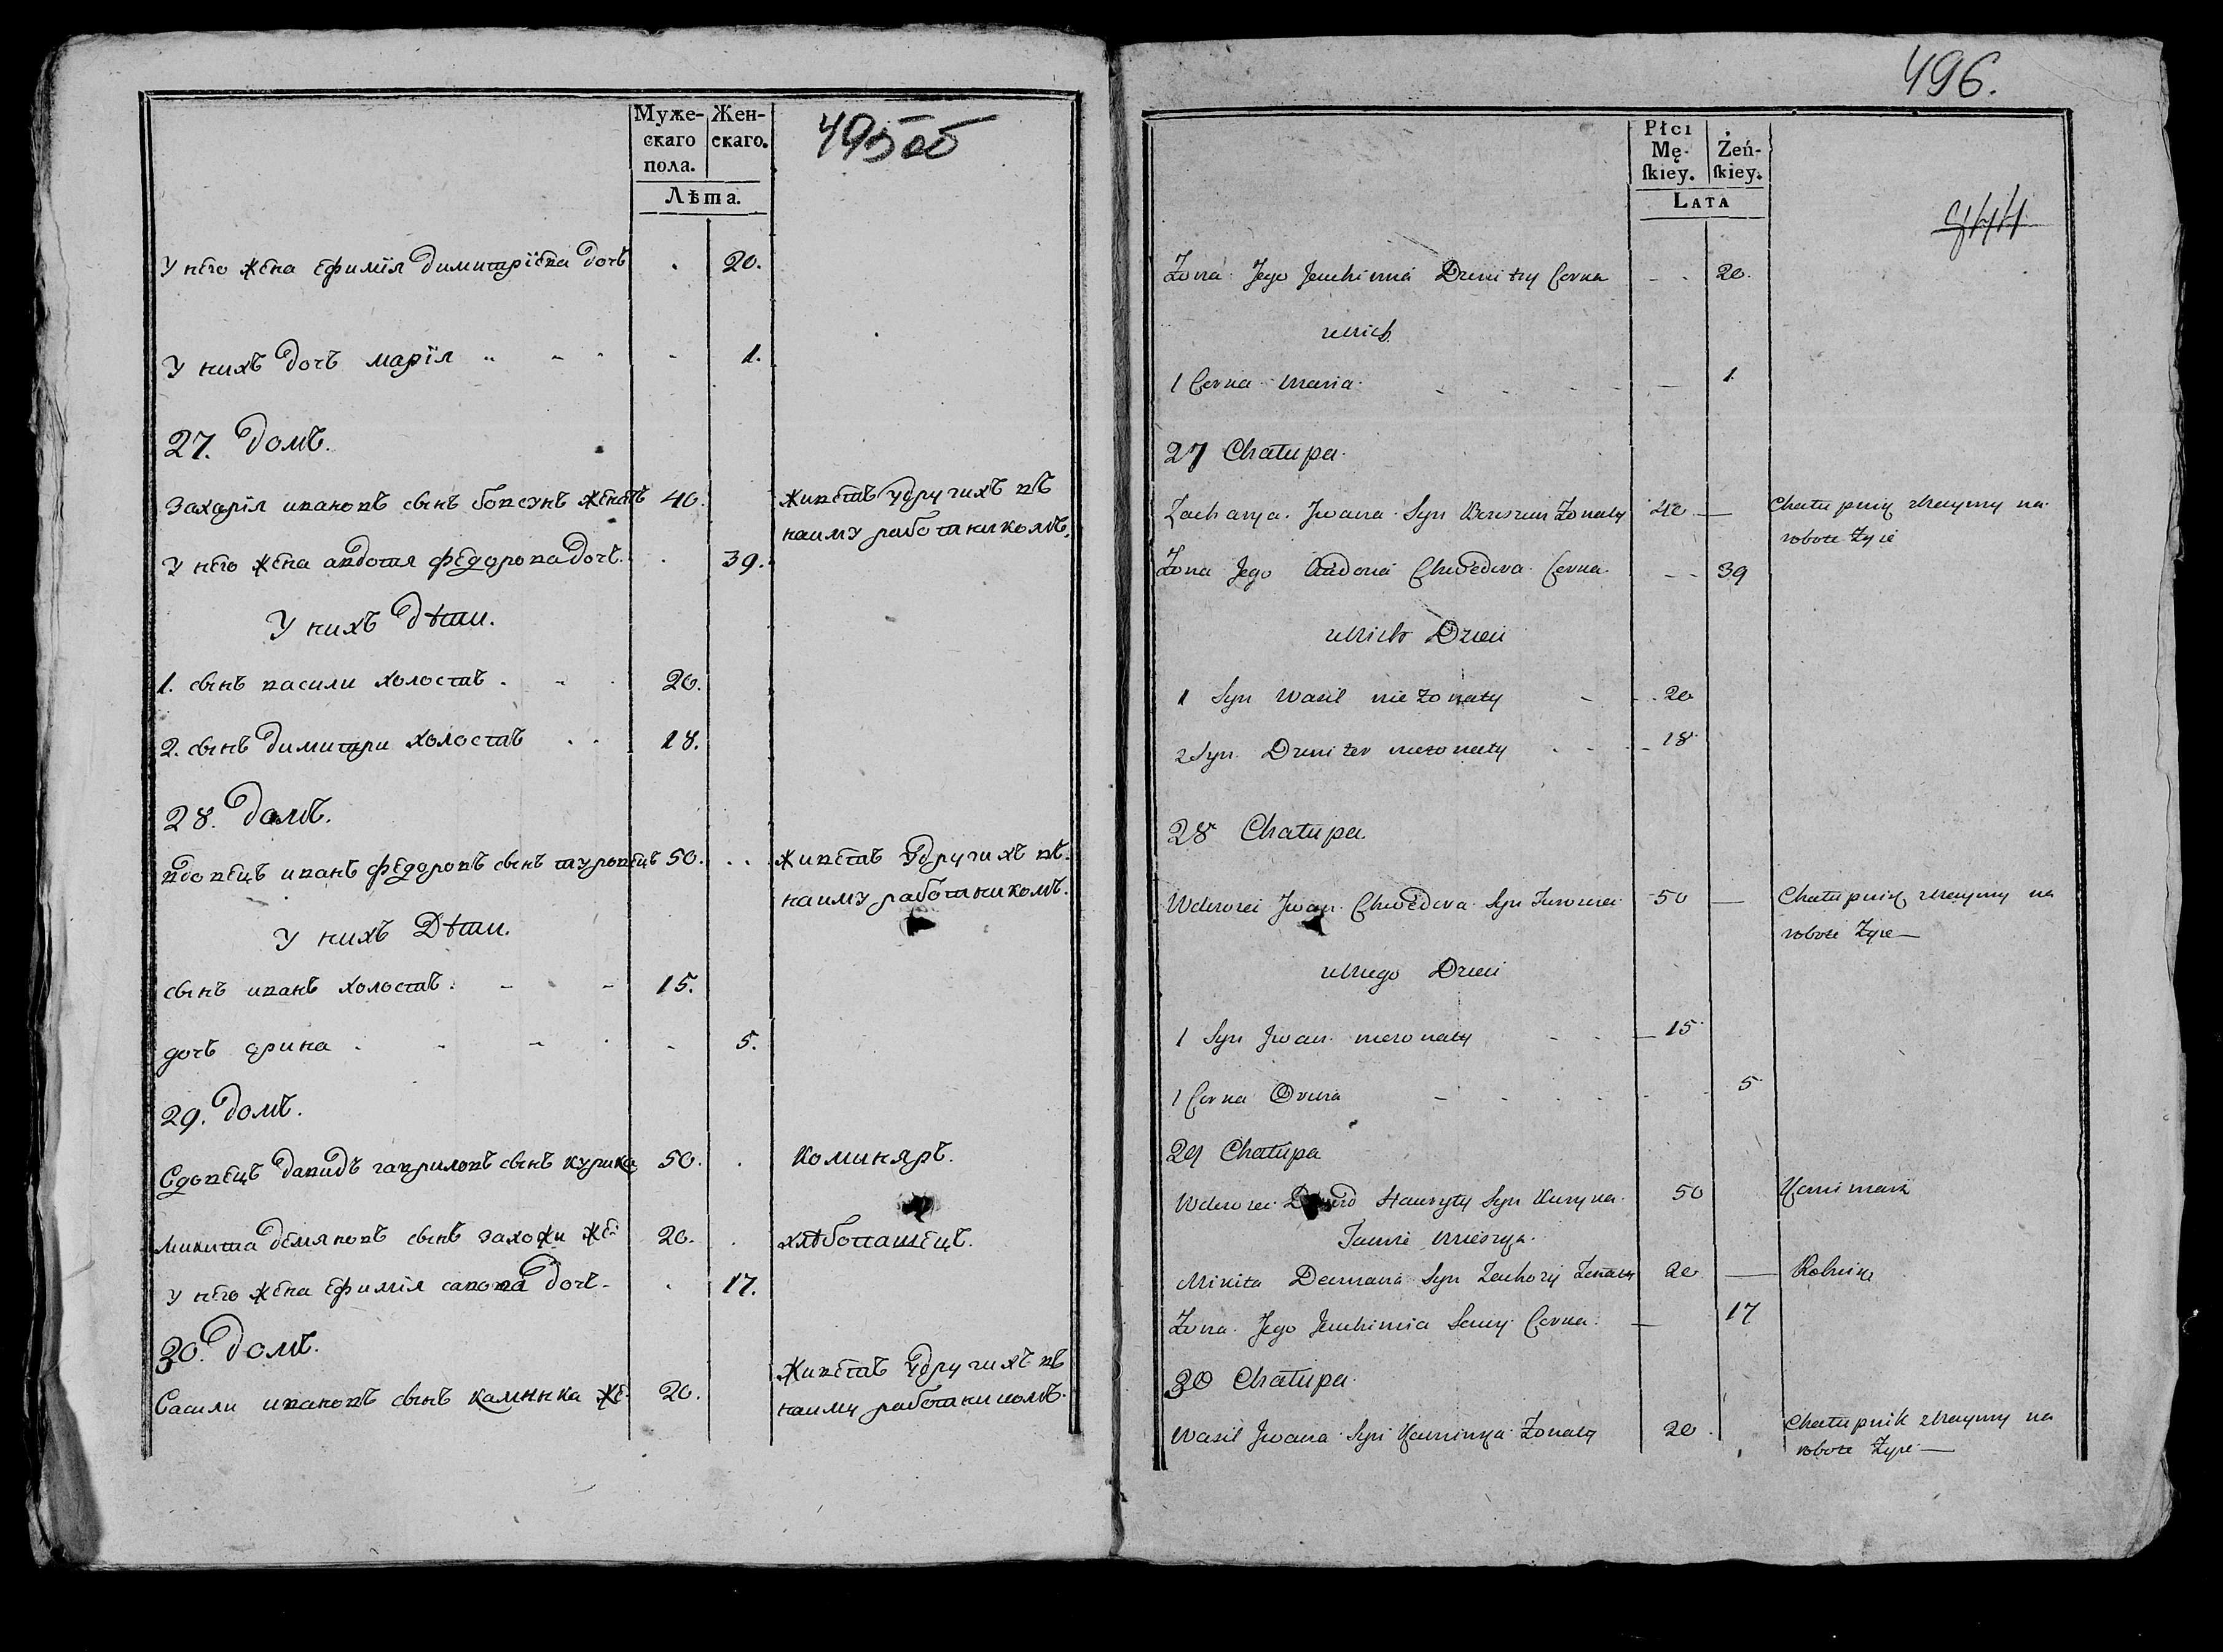 Муже-
скаго
пола.
Жен-
скаго.
Лѣта.
495об
У него жена ефимїя димитрїева дочь . 20.
У нихъ дочь марїя - 1.
27. домъ.
Захарїя ивановъ сынъ бовсунъ женатъ 40.
живетъ у другихъ въ
найму работникомъ.
У него жена авдотя федорова дочь . 39.
У нихъ дѣти.
1. сынъ васили холостъ 20.
2. сынъ димитри холостъ 18.
28. домъ.
вдовецъ иванъ федоровъ сынъ туровецъ 50. ..
живетъ у другихъ въ
найму работникомъ.
У нихъ Дѣти.
сынъ иванъ холостъ 15.
дочь орина - 5.
29. домъ.
вдовецъ давидъ гавриловъ сынъ курика 50. .
коминяръ.
микита демяновъ сынъ захожи же: 20. .
хлѣбопашецъ.
у него жена ефимїя савова дочь . 17.
30. домъ.
Васили ивановъ сынъ каминка же. 20.
живетъ у другихъ въ
найму работникомъ.
496.
Płci
Mę-
ſkiey.
Żeń-
ſkiey.
Lata
Żona Jego Jeuchimia Dmitry Corka - . 20.
u Nich
1 Corka Maria — 1.
27 Chałupa
Zacharya Jwana Syn Bowsun Żonaty 40 —
Chałupnik Naymy na
robote Żyie
Żona Jego Audotia Chwedora Corka - - 39
u Nich Dzieci
1 Syn Wasil nie żonaty - 20
2 Syn Dmiter nieżonaty - 18
28 Chałupa
Wdowiec Jwan Chwedora Syn Turowiec 50 —
Chałupnik Naymy na
robote Żyie —
u Niego Dzieci
1 Syn Jwan nieżonaty — 15
1 Corka Oryna 5
29 Chałupa
Wdowiec Dawid Hawryły Syn Kuryka 50
Kominiarz
Tamże Mieszka
Mikita Demiana Syn Zachoży Żonaty 20 —
Rolnik
Żona Jego Jeuchimia Sawy Corka — 17
30 Chałupa
Wasil Jwana Syn Kaminka Żonaty 20
Chałupnik Naymy na
robote Żyie —